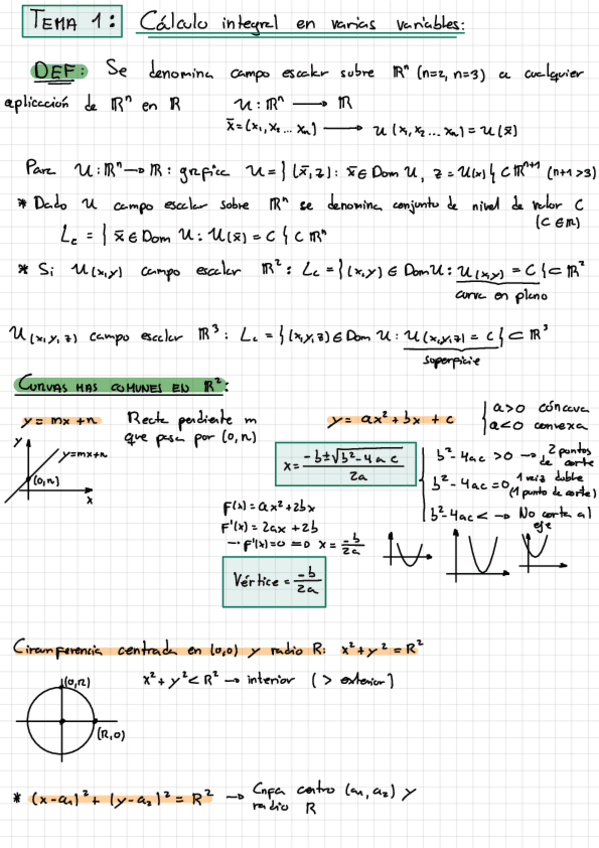 TEMA 1: Cálculo integral en varias variables:
DEF: Se denomina campo escalar sobre ℝⁿ (n=2, n=3) a cualquier
aplicación de ℝⁿ en ℝ u: ℝⁿ ⟶ ℝ
x̄=(x₁,x₂...xₙ) ⟶ u(x₁,x₂...xₙ)=u(x̄)
Para u: ℝⁿ→ℝ: grafica u={(x̄,z): x̄∈Dom u, z=u(x)} ⊂ ℝⁿ⁺¹ (n+1>3)
* Dado u campo escalar sobre ℝⁿ se denomina conjunto de nivel de valor C
(C∈ℝ)
L_c = {x̄∈Dom u: u(x̄)=C} ⊂ ℝⁿ
* Si u(x,y) campo escalar ℝ²: L_c={(x,y)∈Dom u: u(x,y)=C}⊂ℝ²
curva en plano
u(x,y,z) campo escalar ℝ³: L_c={(x,y,z)∈Dom u: u(x,y,z)=C}⊂ℝ³
superficie
CURVAS MAS COMUNES EN ℝ²:
y=mx+n Recta pendiente m
que pasa por (0,n)
y
y=mx+n
(0,n)
x
y=ax²+bx+c
a>0 cóncava
a<0 convexa
x= (-b±√(b²-4ac))/2a
b²-4ac>0 → 2 puntos
de corte
b²-4ac=0, 1 raiz doble
(1 punto de corte)
b²-4ac< → No corta al
eje
F(x)=ax²+2bx
F'(x)=2ax+2b
→F'(x)=0 ⇒ x=-b/2a
Vértice=-b/2a
Circunferencia centrada en (0,0) y radio R: x²+y²=R²
(0,R)
(R,0)
x²+y²<R² → interior (> exterior)
* (x-a₁)²+(y-a₂)²=R² → Cnfa centro (a₁,a₂) y
radio R